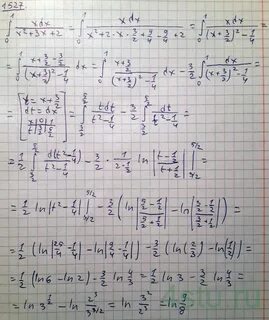 1527
∫₀¹ xdx/(x²+3x+2) = ∫₀¹ xdx/(x²+2·x·3/2+9/4-9/4+2) = ∫₀¹ xdx/((x+3/2)²-1/4) =
= ∫₀¹ (x+3/2-3/2)/((x+3/2)²-1/4) dx = ∫₀¹ (x+3/2)/((x+3/2)²-1/4) dx - 3/2 ∫₀¹ dx/((x+3/2)²-1/4) =
= [t = x+3/2 dt = dx x|0|1 t|3/2|5/2] = ∫_{3/2}^{5/2} tdt/(t²-1/4) - 3/2 ∫_{3/2}^{5/2} dt/(t²-1/4) =
= 1/2 ∫_{3/2}^{5/2} d(t²-1/4)/(t²-1/4) - 3/2 · 1/(2·1/2) ln|(t-1/2)/(t+1/2)| |_{3/2}^{5/2} =
= 1/2 ln|t²-1/4| |_{3/2}^{5/2} - 3/2 (ln|(5/2-1/2)/(5/2+1/2)| - ln|(3/2-1/2)/(3/2+1/2)|) =
= 1/2 (ln|25/4-1/4| - ln|9/4-1/4|) - 3/2 (ln(2/3) - ln(1/2)) =
= 1/2 (ln6 - ln2) - 3/2 ln 4/3 = 1/2 ln3 - 3/2 ln 4/3 =
= ln 3^{1/2} - ln 2³/3^{3/2} = ln 3²/2³ = ln 9/8